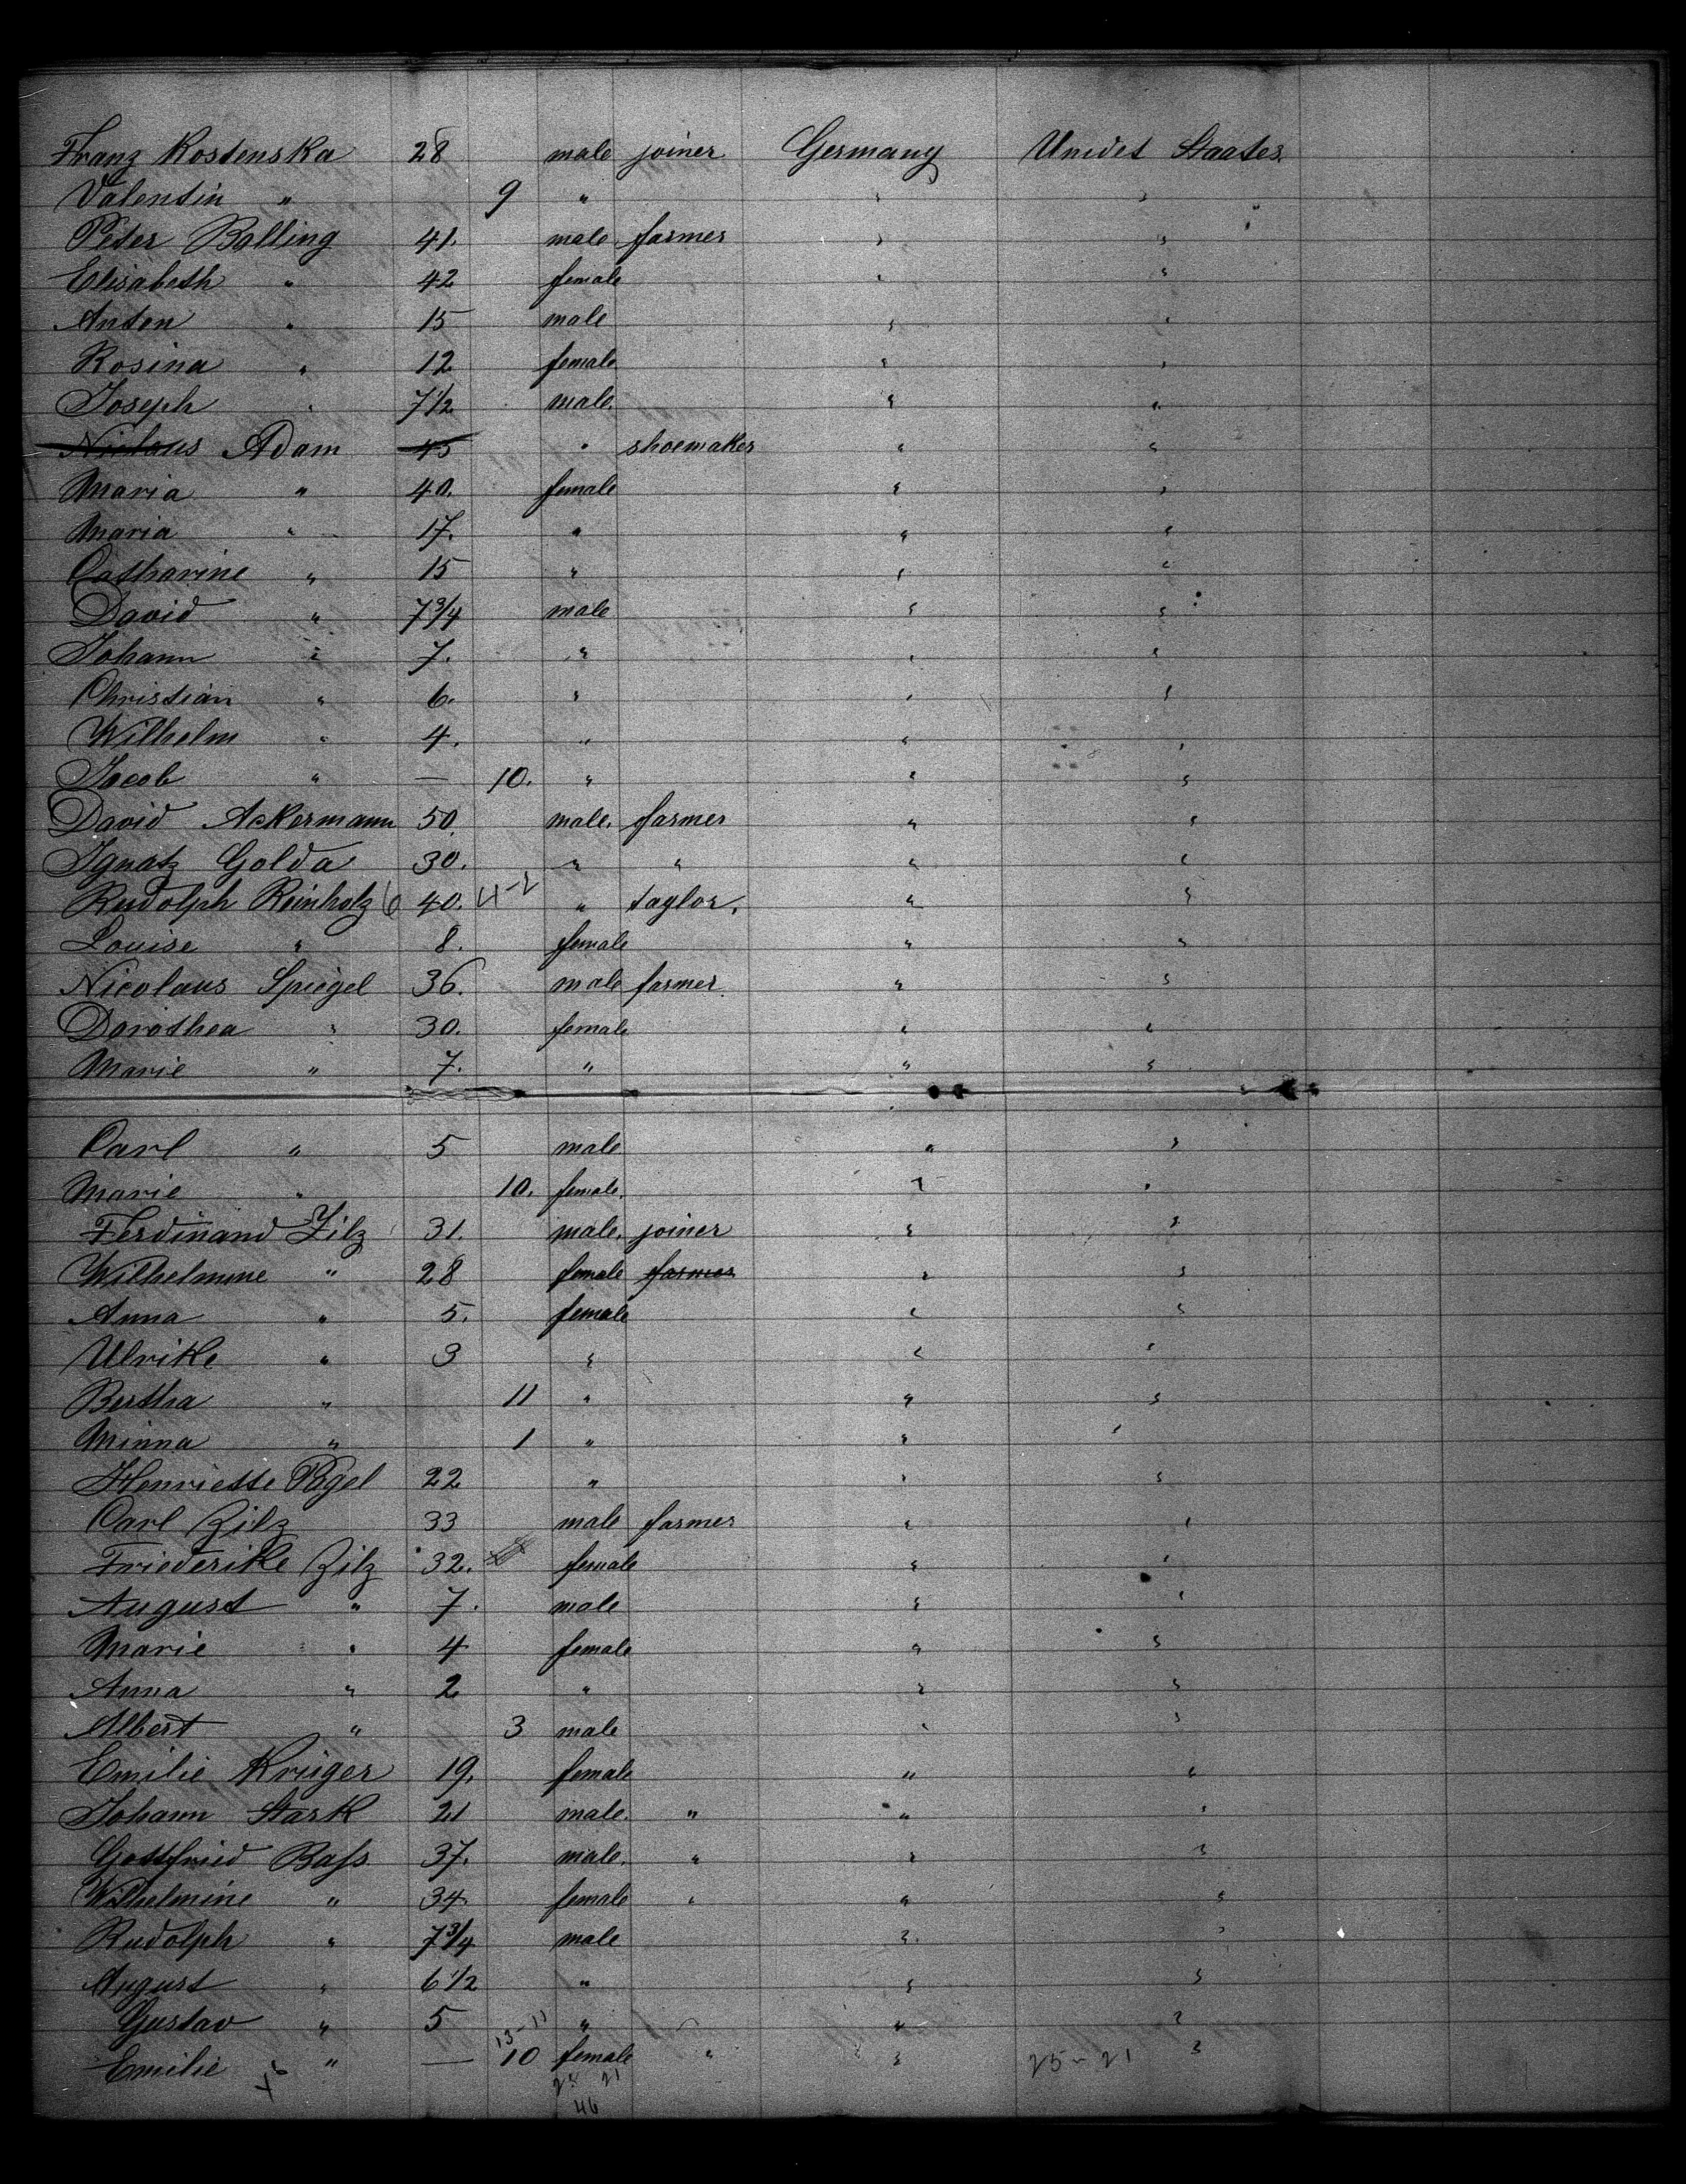 Franz Kostenska 28 male joiner Germany Unidet Staates
Valentin " 9 " " "
Peter Balling 41. male farmer " "
Elisabeth " 42 female " "
Anton " 15 male " "
Rosina " 12 female " "
Joseph " 7 1/2 male. " "
Niclaus Adam 45 " shoemaker " "
Maria " 40. female " "
Maria " 17. " " "
Catharine " 15 " " "
David " 7 3/4 male " "
Johann " 7. " " "
Christian " 6. " " "
Wilhelm " 4. " " "
Jacob " — 10. " " "
David Ackermann 50. male. farmer " "
Ignatz Golda 30. " " " "
Rudolph Reinholz 40. " taylor. " "
Louise " 8. female " "
Nicolaus Spiegel 36. male farmer. " "
Dorothea " 30. female " "
Marie " 7. " " "
Carl " 5 male " "
Marie " 10. female. " "
Ferdinand Zilz 31. male. joiner " "
Wilhelmine " 28 female farmer " "
Anna " 5. female " "
Ulrike " 3 " " "
Bertha " 11 " " "
Minna " 1 " " "
Henriette Pagel 22 " " "
Carl Zilz 33 male farmer " "
Friederike Zilz 32. female " "
August " 7. male " "
Marie " 4 female " "
Anna " 2 " " "
Albert " 3 male " "
Emilie Krüger 19. female " "
Johann Stark 21 male. " " "
Gottfried Bass 37. male. " " "
Wilhelmine " 34. female " " "
Rudolph " 7 3/4 male " "
August " 6 1/2 " " "
Gustav " 5 " " "
13-11
Emilie " — 10 female " " 25-21 "
25 21
46